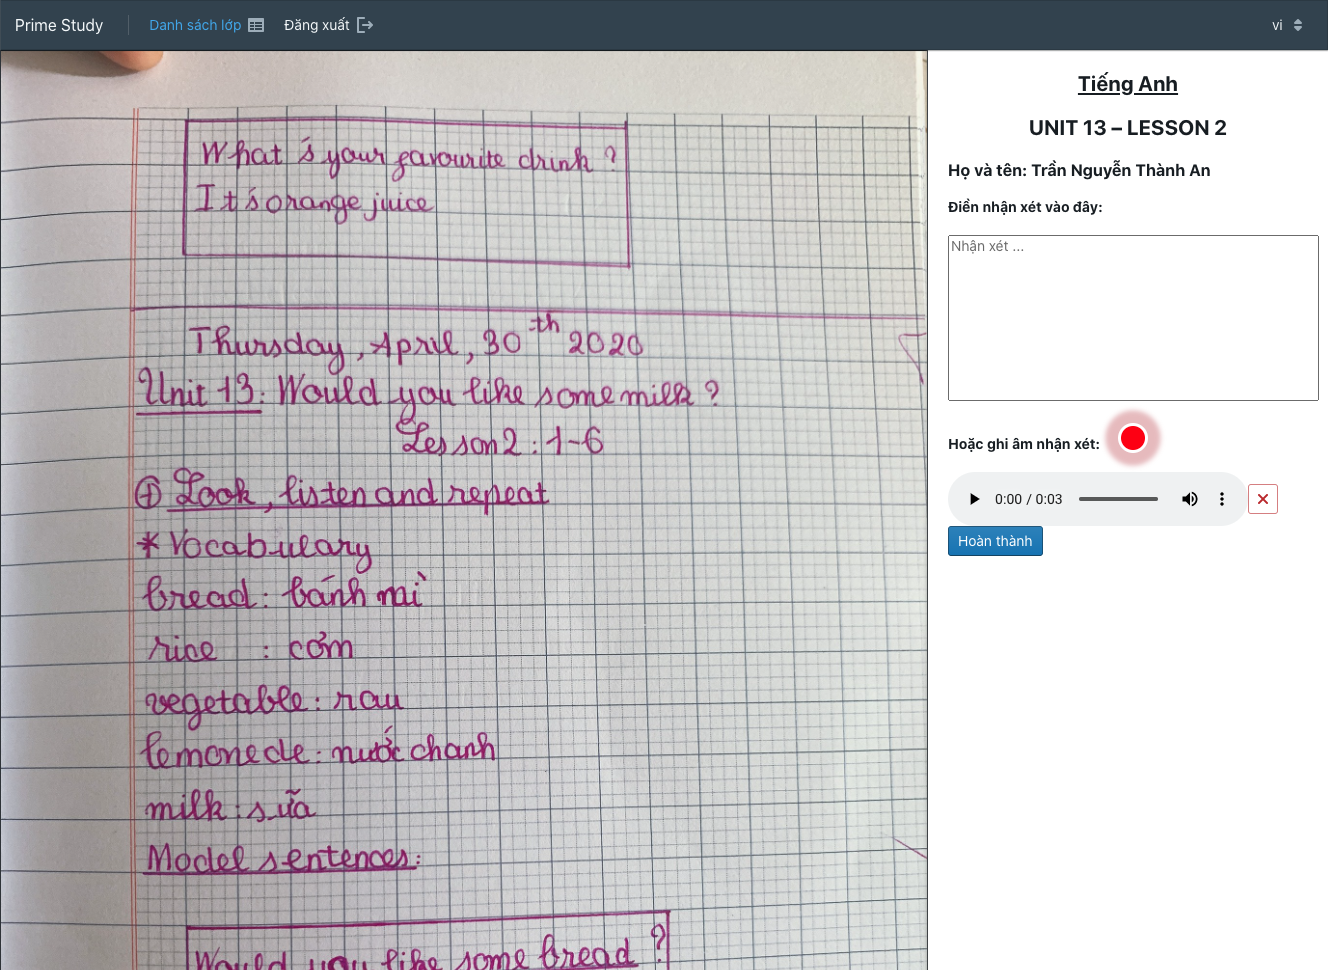 Prime Study
Danh sách lớp
Đăng xuất
vi
What's your favourite drink ?
It's orange juice
Thursday, April, 30th 2020
Unit 13: Would you like some milk ?
Lesson 2 : 1-6
Look, listen and repeat
* Vocabulary
bread : bánh mì
rice : cơm
vegetable : rau
lemonede : nước chanh
milk : sữa
Model sentences:
Would you like some bread ?
Tiếng Anh
UNIT 13 – LESSON 2
Họ và tên: Trần Nguyễn Thành An
Điền nhận xét vào đây:
Nhận xét ...
Hoặc ghi âm nhận xét:
0:00 / 0:03
Hoàn thành